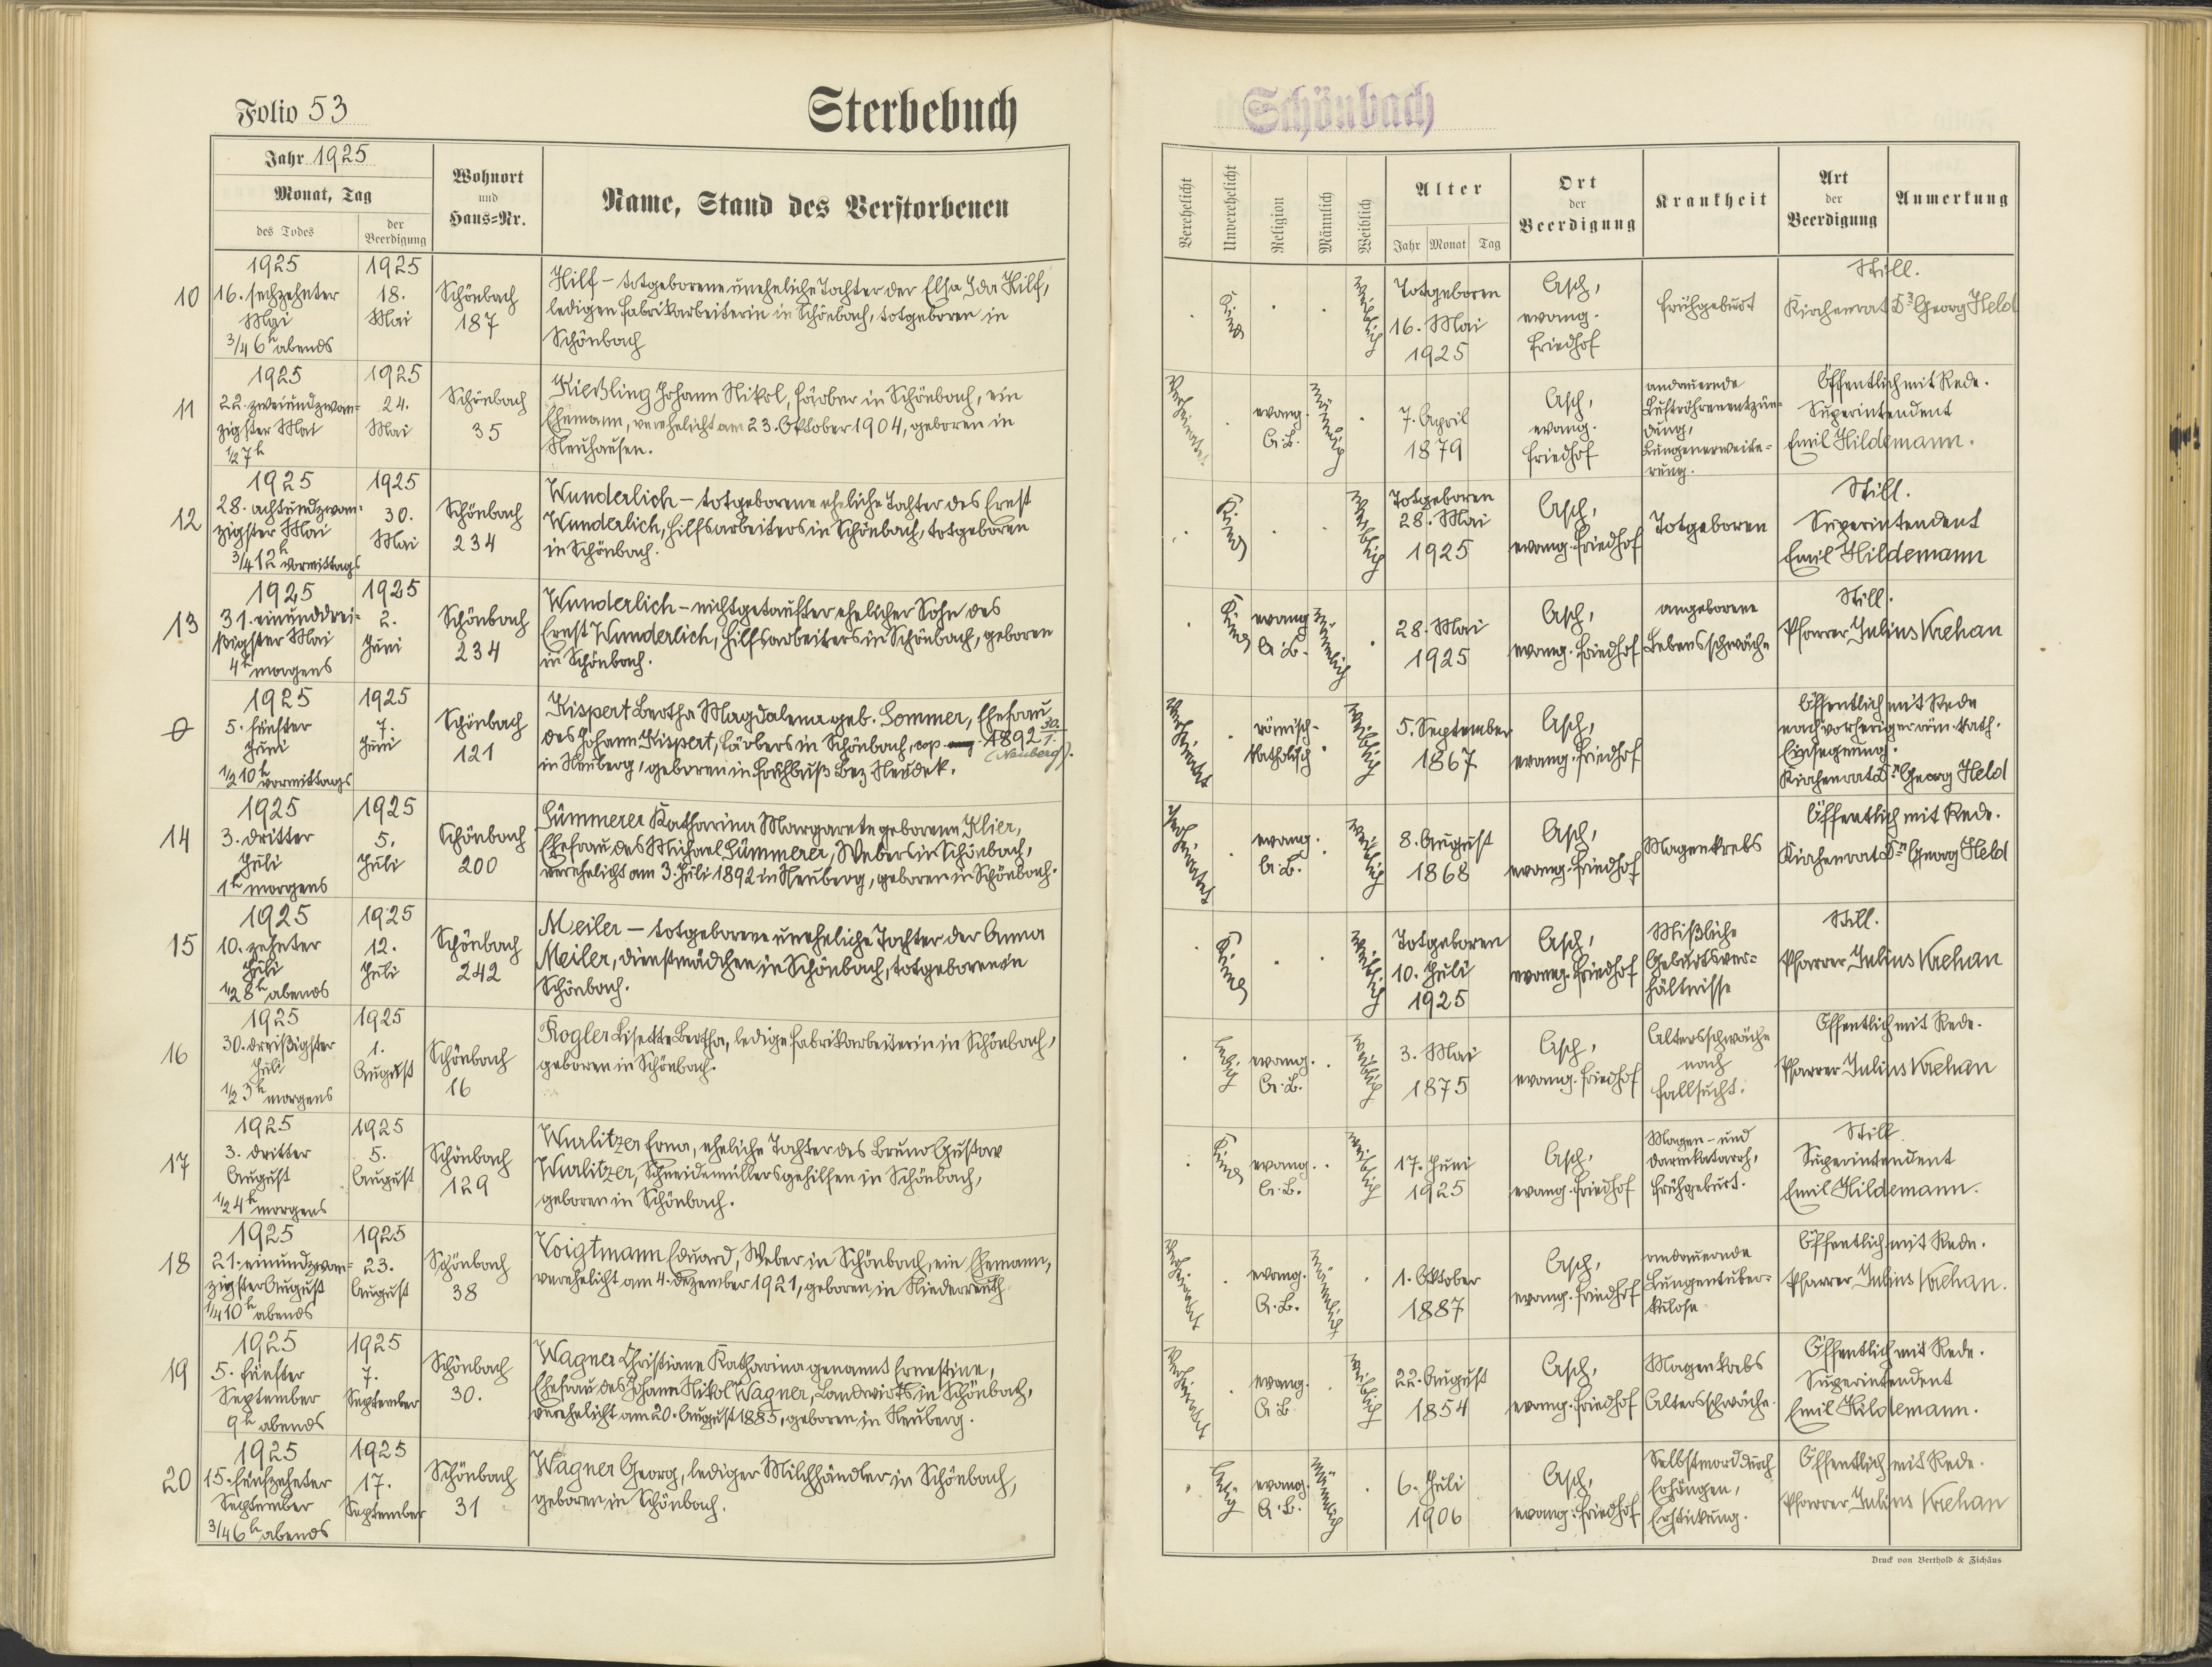 Folio 53
Sterbebuch
Schönbach
Jahr 1925
Monat, Tag
des Todes
der Beerdigung
Wohnort
und
Haus=Nr.
Name, Stand des Verstorbenen
Verehelicht
Unverehelicht
Religion
Männlich
Weiblich
Alter
Jahr Monat Tag
Ort
der
Beerdigung
Krankheit
Art
der
Beerdigung
Anmerkung
10
1925
16. sechzehnter
Mai
3/4 6h abends
1925
18.
Mai
Schönbach
187
Hilf – totgeborene uneheliche Tochter der Elsa Ida Hilf,
ledigen Fabrikarbeiterin in Schönbach, totgeboren in
Schönbach
Kind
weiblich
Totgeboren
16. Mai
1925
Asch,
evang.
Friedhof
Frühgeburt
Still.
Kirchenrat Dr Georg Held
11
1925
22. zweiundzwan=
zigster Mai
1/2 7h
1925
24.
Mai
Schönbach
35
Kießling Johann Nikol, Färber in Schönbach, ein
Ehemann, verehelicht am 23. Oktober 1904, geboren in
Neuhausen.
Verheiratet
evang.
A.B.
männlich
7. April
1879
Asch,
evang.
Friedhof
andauernde
Luftröhrenentzün=
dung,
Lungenerweite=
rung.
Öffentlich mit Rede.
Superintendent
Emil Hildemann.
12
1925
28. achtundzwan=
zigster Mai
3/4 12h vormittags
1925
30.
Mai
Schönbach
234
Wunderlich – totgeborene eheliche Tochter des Ernst
Wunderlich, Hilfsarbeiters in Schönbach, totgeboren
in Schönbach.
Kind
weiblich
Totgeboren
28. Mai
1925
Asch,
evang. Friedhof
Totgeboren
Still.
Superintendent
Emil Hildemann
13
1925
31. einunddrei=
ßigster Mai
4h morgens
1925
2.
Juni
Schönbach
234
Wunderlich – nichtgetaufter ehelicher Sohn des
Ernst Wunderlich, Hilfsarbeiters in Schönbach, geboren
in Schönbach.
Kind
evang.
A.B.
männlich
28. Mai
1925
Asch,
evang. Friedhof
angeborene
Lebensschwäche
Still.
Pfarrer Julius Krehan
0
1925
5. fünfter
Juni
1/2 10h vormittags
1925
7.
Juni
Schönbach
121
Kispert Bertha Magdalena geb. Sommer, Ehefrau
des Johann Kispert, Färbers in Schönbach, cop 1892 30./1.
(Neuberg).
in Neuberg, geboren in Frühbuß Bez. Neudek.
Verheiratet
römisch-
katholisch
weiblich
5. September
1867
Asch,
evang. Friedhof
Öffentlich mit Rede
nach vorheriger röm. kath.
Einsegnung.
Kirchenrat Dr Georg Held
14
1925
3. dritter
Juli
1h morgens
1925
5.
Juli
Schönbach
200
Sümmerer Katharina Margarete geborene Klier,
Ehefrau des Michael Sümmerer, Webers in Schönbach,
verehelicht am 3. Juli 1892 in Neuberg, geboren in Schönbach.
Verheiratet
evang.
A.B.
weiblich
8. August
1868
Asch,
evang. Friedhof
Magenkrebs
Öffentlich mit Rede.
Kirchenrat Dr Georg Held
15
1925
10. zehnter
Juli
1/2 8h abends
1925
12.
Juli
Schönbach
242
Meiler – totgeborene uneheliche Tochter der Anna
Meiler, Dienstmädchen in Schönbach, totgeboren in
Schönbach.
Kind
weiblich
Totgeboren
10. Juli
1925
Asch,
evang. Friedhof
Mißliche
Geburtsver=
hältnisse
Still.
Pfarrer Julius Krehan
16
1925
30. dreißigster
Juli
1/2 3h morgens
1925
1.
August
Schönbach
16
Kogler Lisette Bertha, ledige Fabrikarbeiterin in Schönbach,
geboren in Schönbach.
ledig
evang.
A.B.
weiblich
3. Mai
1875
Asch,
evang. Friedhof
Altersschwäche
nach
Fallsucht.
Öffentlich mit Rede.
Pfarrer Julius Krehan
17
1925
3. dritter
August
1/2 4h morgens
1925
5.
August
Schönbach
129
Wurlitzer Erna, eheliche Tochter des Bruno Gustav
Wurlitzer, Schneidemüllersgehilfen in Schönbach,
geboren in Schönbach.
Kind
evang.
A.B.
weiblich
17. Juni
1925
Asch,
evang. Friedhof
Magen- und
Darmkatarrh,
Frühgeburt.
Still
Superintendent
Emil Hildemann.
18
1925
21. einundzwan=
zigster August
1/4 10h abends
1925
23.
August
Schönbach
38
Voigtmann Eduard, Weber in Schönbach, ein Ehemann,
verehelicht am 4. Dezember 1921, geboren in Niederreuth
Verheiratet
evang.
A.B.
männlich
1. Oktober
1887
Asch,
evang. Friedhof
andauernde
Lungentuber=
kulose
Öffentlich mit Rede.
Pfarrer Julius Krehan.
19
1925
5. fünfter
September
9h abends
1925
7.
September
Schönbach
30.
Wagner Christiane Katharina genannt Ernestine,
Ehefrau des Johann Nikol Wagner, Landwirts in Schönbach,
verehelicht am 20. August 1885, geboren in Neuberg.
Verheiratet
evang.
A.B.
weiblich
22. August
1854
Asch,
evang. Friedhof
Magenkrebs
Altersschwäche.
Öffentlich mit Rede.
Superintendent
Emil Hildemann.
20
1925
15. fünfzehnter
September
3/4 6h abends
1925
17.
September
Schönbach
31
Wagner Georg, lediger Milchhändler in Schönbach,
geboren in Schönbach.
ledig
evang.
A.B.
männlich
6. Juli
1906
Asch,
evang. Friedhof
Selbstmord durch
Erhängen,
Erstickung.
Öffentlich mit Rede.
Pfarrer Julius Krehan
Druck von Berthold & Zichäus